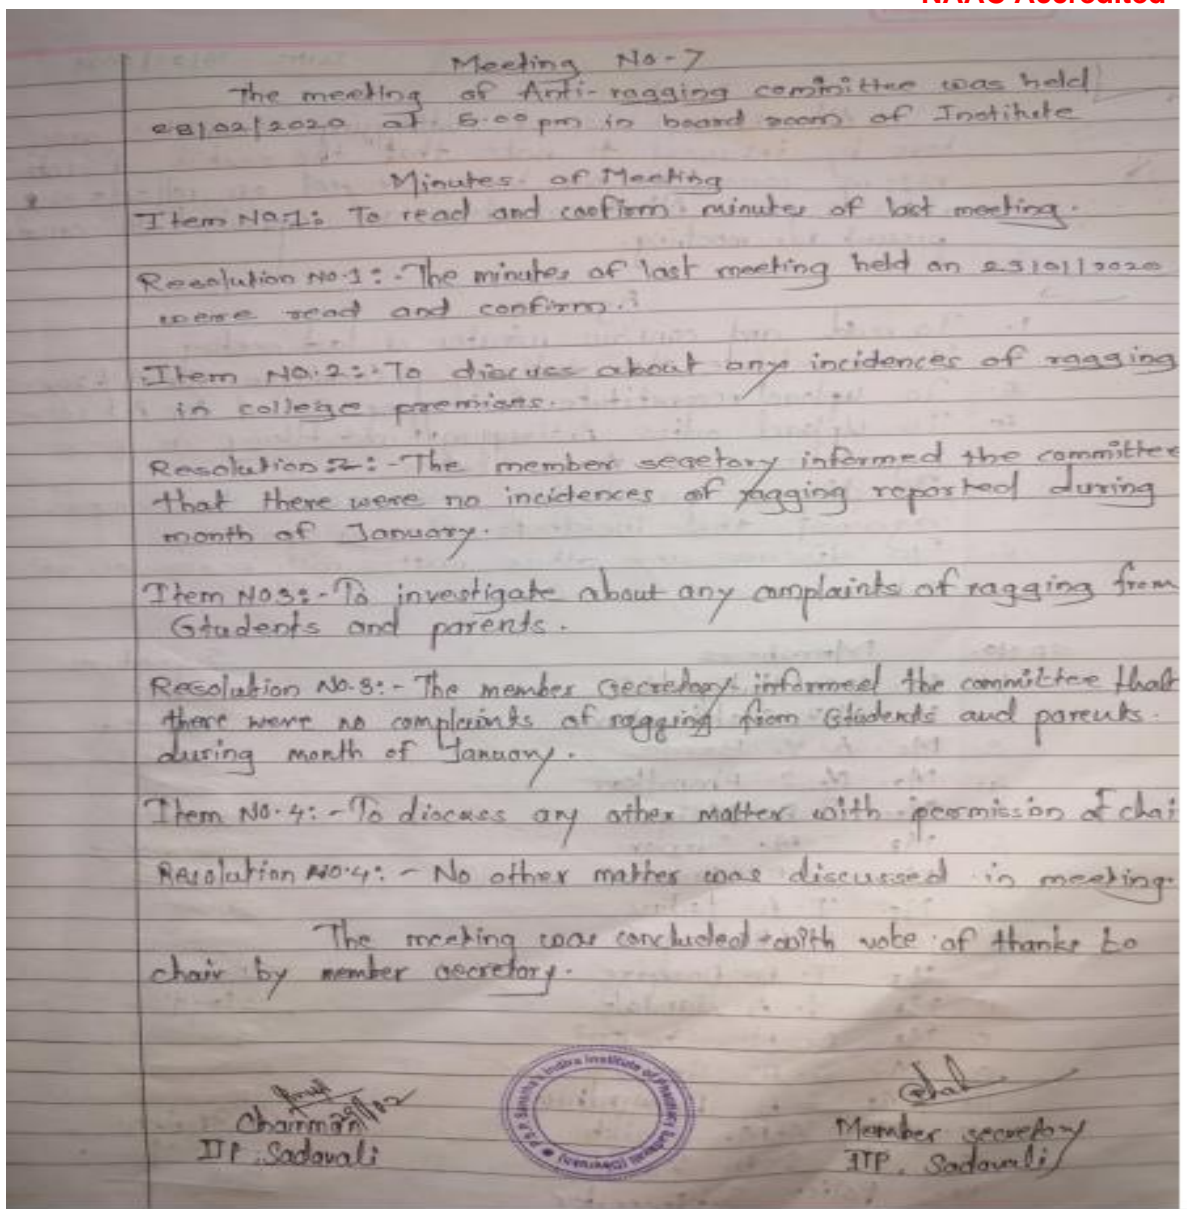 NAAC Accredited
Meeting No-7
The meeting of Anti-ragging committee was held
28/02/2020 at 5.00pm in board room of Institute
Minutes of Meeting
Item No.1: To read and confirm minutes of last meeting.
Resolution No.1:-The minutes of last meeting held on 23/01/2020
were read and confirm.
Item No.2:-To discuss about any incidences of ragging
in college premises.
Resolution 2:-The member secetory informed the committee
that there were no incidences of ragging reported during
month of January.
Item No3:-To investigate about any complaints of ragging from
Students and parents.
Resolution No-3:-The member secretory informed the committee that
there were no complaints of ragging from Students and parents.
during month of January.
Item No.4:-To discuss any other matter with permission of chai
Resolution No.4:-No other matter was discussed in meeting.
The meeting was concluded with vote of thanks to
chair by member secretory.
Chairman
IIP, Sadavali
P.S.P. Sanstha's Indira Institute of Pharmacy Sadavali (Devrukh)
Member secretory
IIP, Sadavali